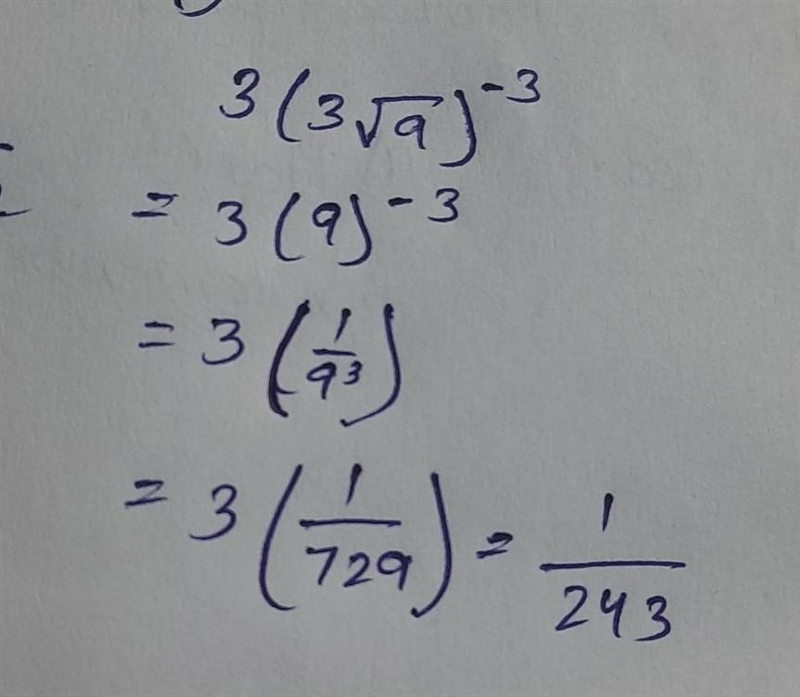 3(3√9)⁻³
= 3(9)⁻³
= 3(1/9³)
= 3(1/729) = 1/243